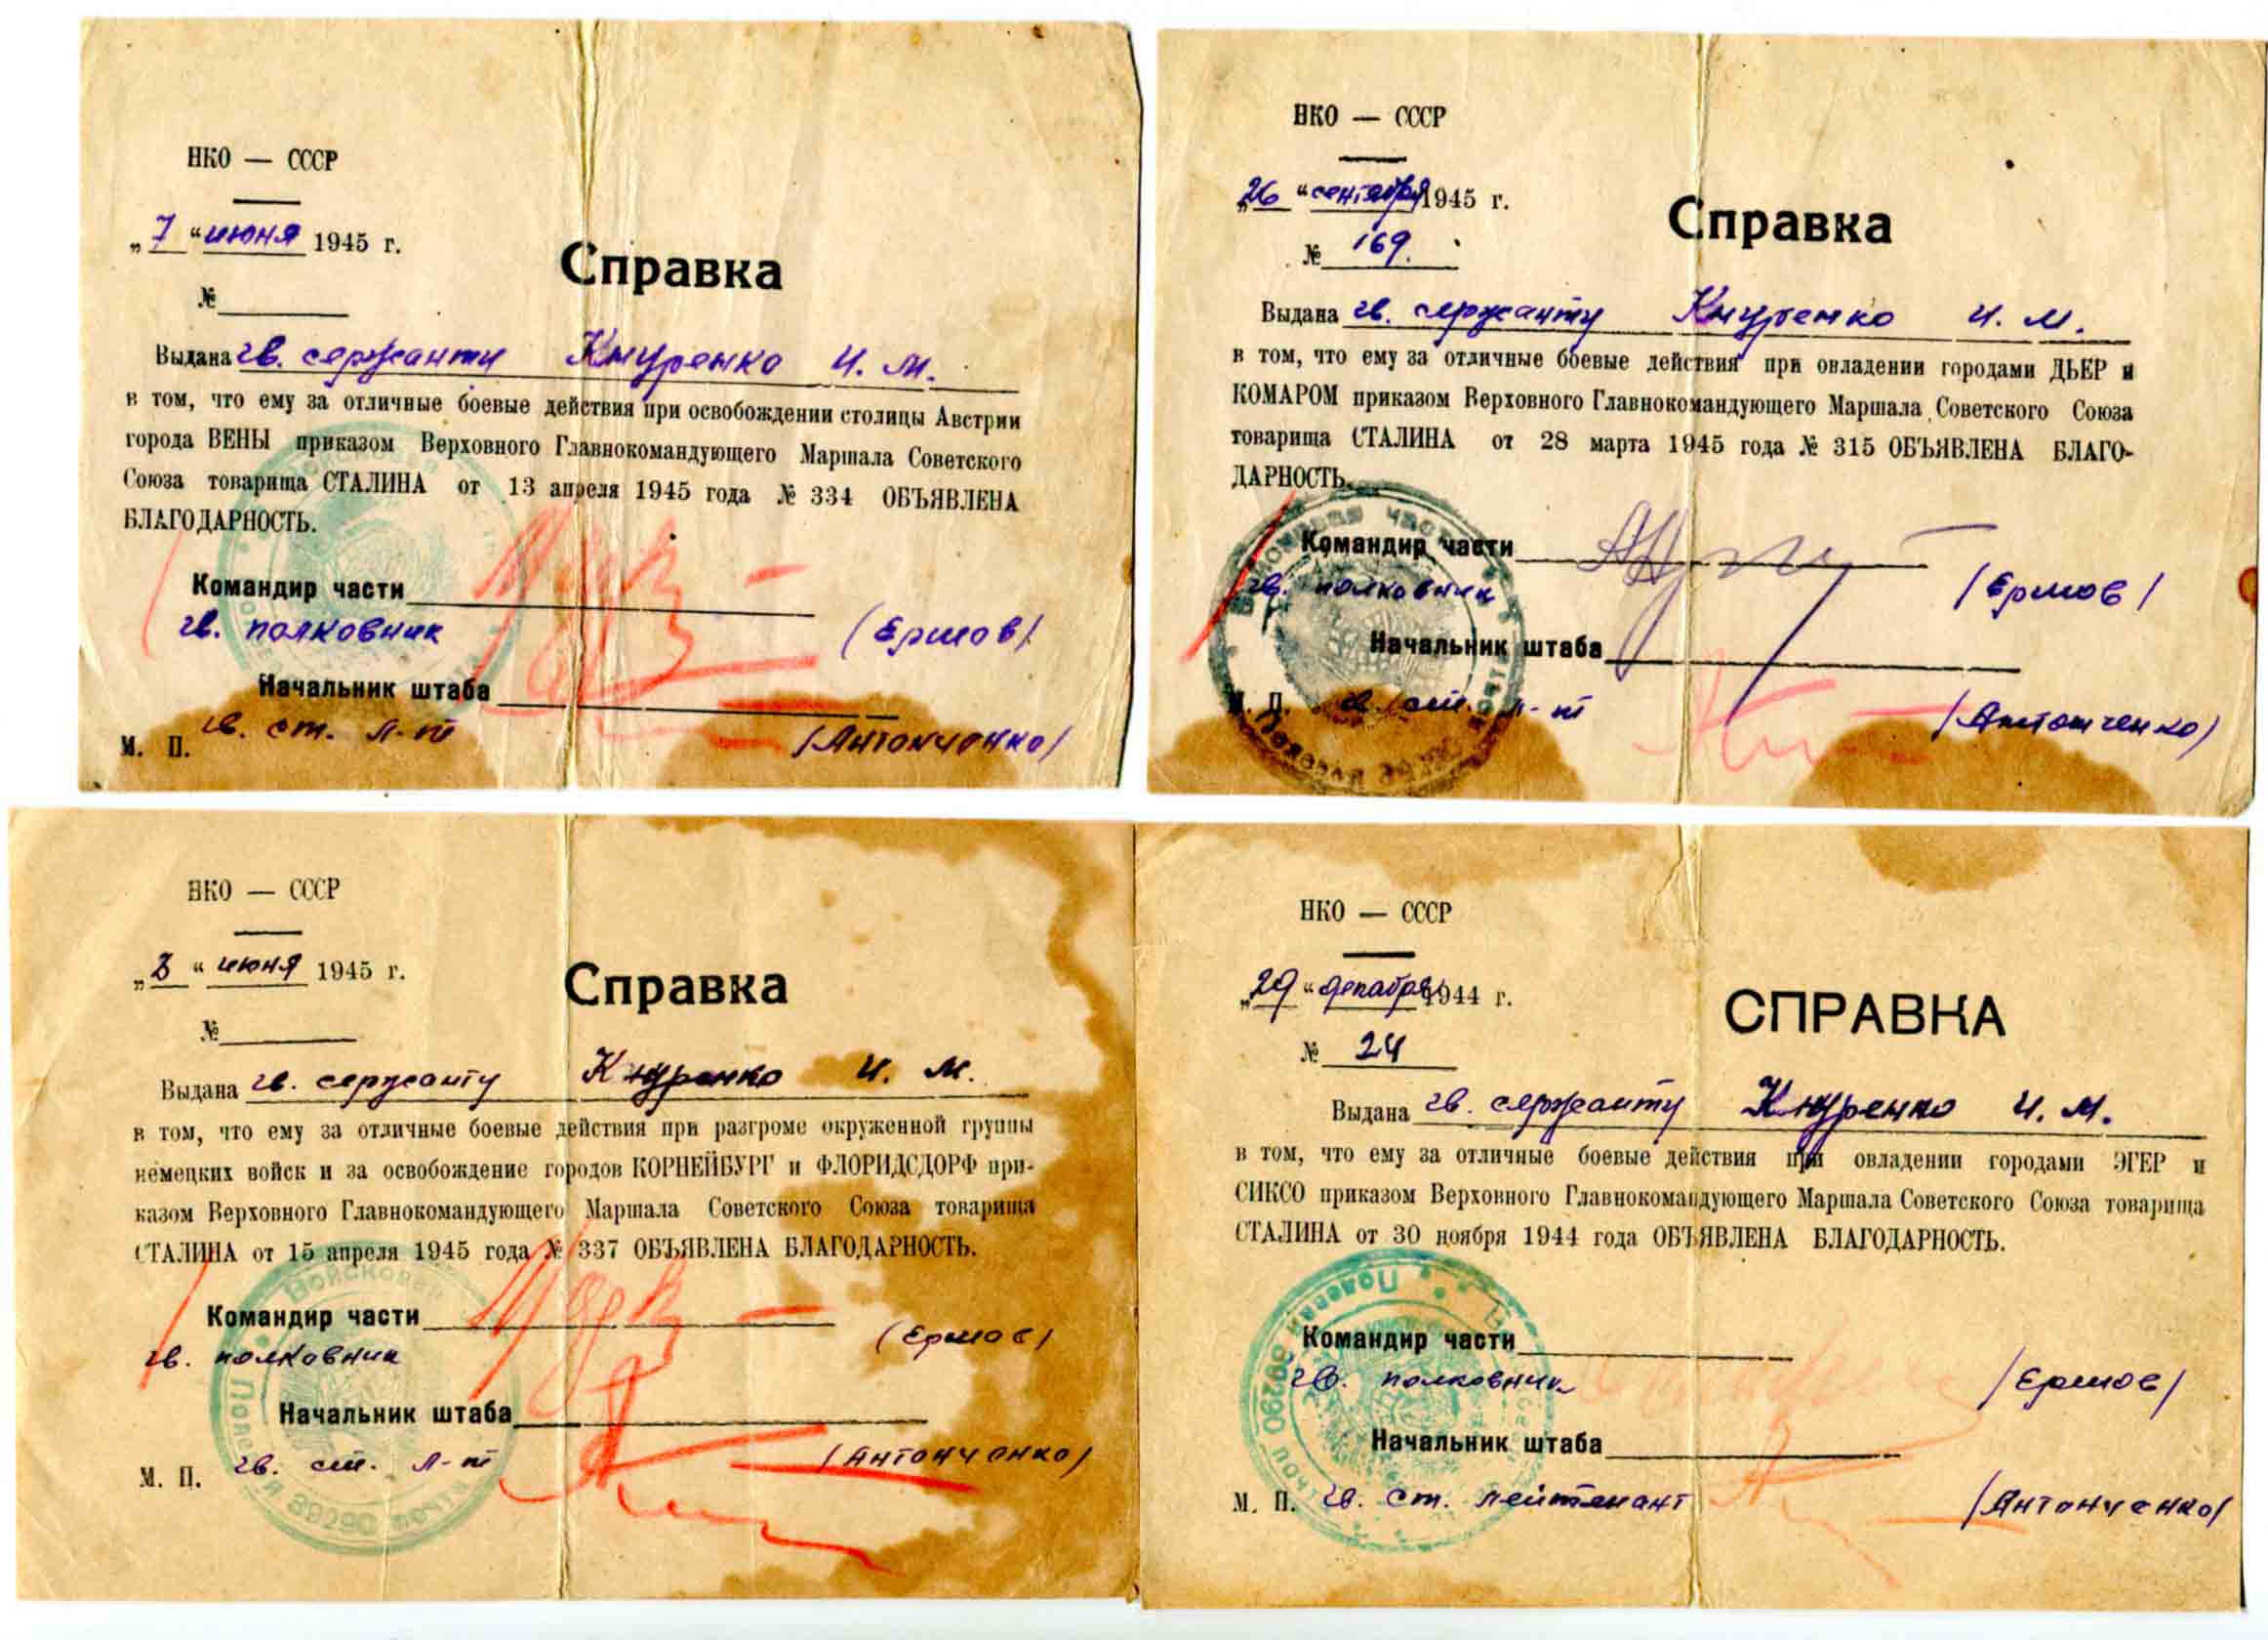 НКО — СССР
„7“ июня 1945 г.
№
Справка
Выдана гв. сержанту Кнуренко И. М.
в том, что ему за отличные боевые действия при освобождении столицы Австрии
города ВЕНЫ приказом Верховного Главнокомандующего Маршала Советского
Союза товарища СТАЛИНА от 13 апреля 1945 года № 334 ОБЪЯВЛЕНА
БЛАГОДАРНОСТЬ.
Командир части
гв. полковник (Ермов)
Начальник штаба
М. П. гв. ст. л-т (Антонченко)
НКО — СССР
„26“ сентября 1945 г.
№ 169.
Справка
Выдана гв. сержанту Кнуренко И. М.
в том, что ему за отличные боевые действия при овладении городами ДЬЕР и
КОМАРОМ приказом Верховного Главнокомандующего Маршала Советского Союза
товарища СТАЛИНА от 28 марта 1945 года № 315 ОБЪЯВЛЕНА БЛАГО-
ДАРНОСТЬ.
Командир части
гв. полковник /Ермов/
Начальник штаба
М. П. гв. ст. л-т /Антонченко)
НКО — СССР
„8“ июня 1945 г.
№
Справка
Выдана гв. сержанту Кнуренко И. М.
в том, что ему за отличные боевые действия при разгроме окруженной группы
немецких войск и за освобождение городов КОРНЕЙБУРГ и ФЛОРИДСДОРФ при-
казом Верховного Главнокомандующего Маршала Советского Союза товарища
СТАЛИНА от 15 апреля 1945 года № 337 ОБЪЯВЛЕНА БЛАГОДАРНОСТЬ.
Командир части
гв. полковник (Ермов)
Начальник штаба
М. П. гв. ст. л-т (Антонченко)
Войсковая
Полевая 39290 почта
НКО — СССР
„29“ декабря 1944 г.
№ 24
СПРАВКА
Выдана гв. сержанту Кнуренко И. М.
в том, что ему за отличные боевые действия при овладении городами ЭГЕР и
СИКСО приказом Верховного Главнокомандующего Маршала Советского Союза товарища
СТАЛИНА от 30 ноября 1944 года ОБЪЯВЛЕНА БЛАГОДАРНОСТЬ.
Командир части
гв. полковник /Ермов/
Начальник штаба
М. П. гв. ст. лейтенант /Антонченко/
Полевая 39290 почта